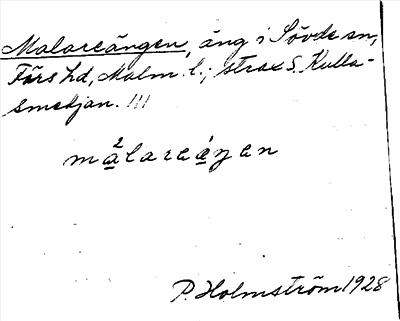 Malareängen, äng i Sövde sn,
Färs hd, Malm. l.; strax S. Kulla-
smedjan. !!!
2
malareäŋen
P. Holmström 1928